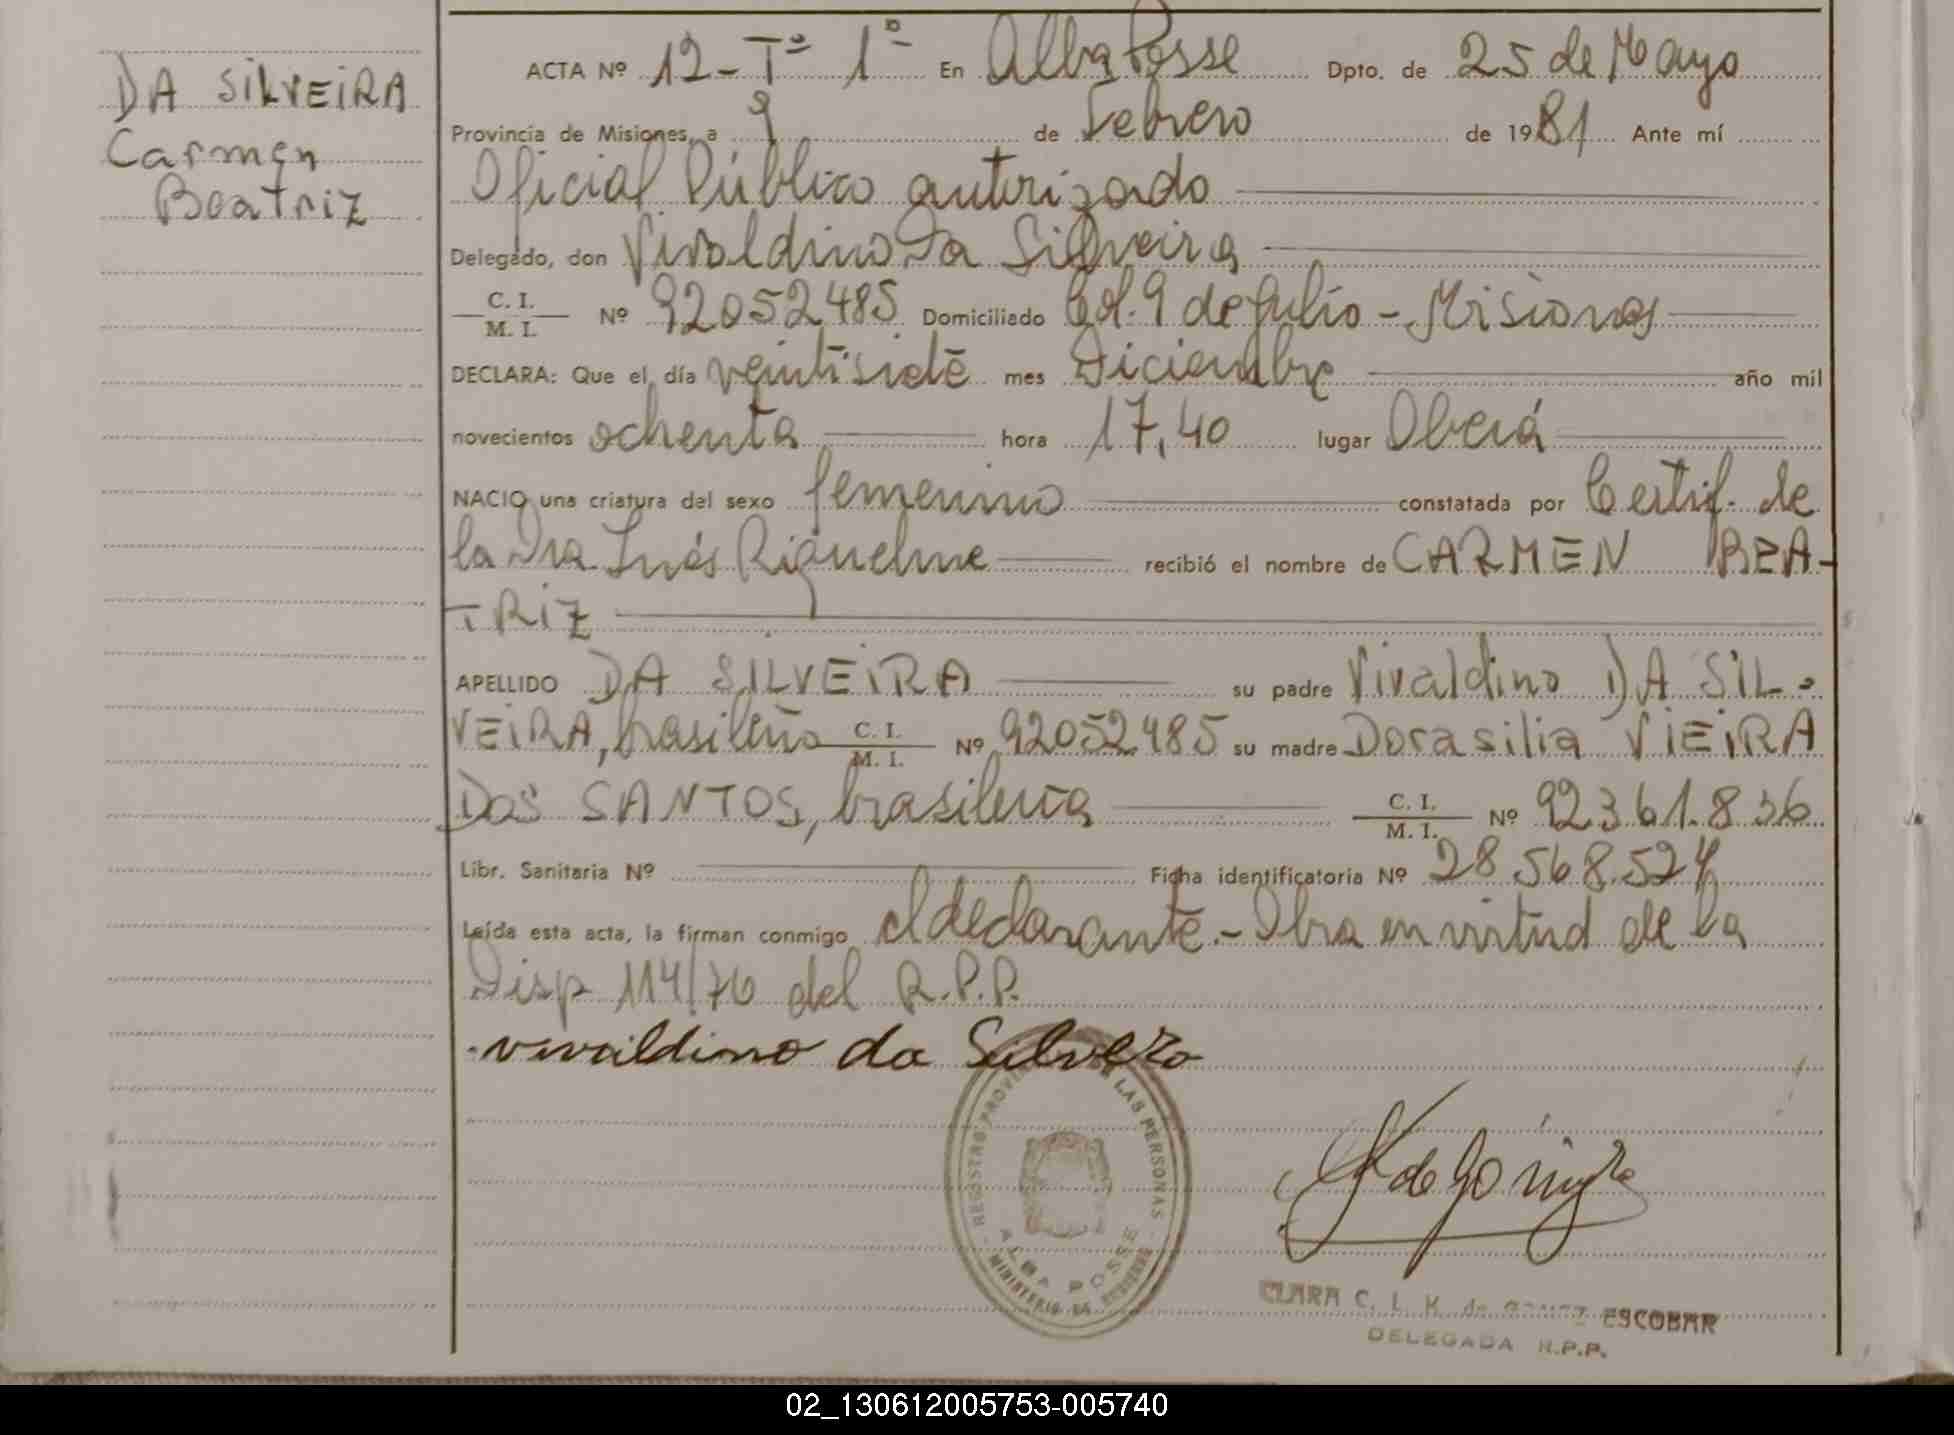 DA SILVEIRA
Carmen
Beatriz
ACTA Nº 12-Tº 1º En Alba Posse Dpto. de 25 de Mayo
Provincia de Misiones, a 9 de Febrero de 1981 Ante mí
Oficial Público autorizado
Delegado, don Vivaldino Da Silveira
C. I.
M. I. Nº 92052485 Domiciliado Col. 9 de Julio - Misiones
DECLARA: Que el día veintisiete mes Diciembre año mil
novecientos ochenta hora 17,40 lugar Oberá
NACIO una criatura del sexo femenino constatada por Certif. de
la Dra Inés Riquelme recibió el nombre de CARMEN BEA-
TRIZ
APELLIDO DA SILVEIRA su padre Vivaldino DA SIL-
VEIRA, brasileño C. I. M. I. Nº 92052485 su madre Dorasilia VIEIRA
DOS SANTOS, brasileña C. I. M. I. Nº 92361.836
Libr. Sanitaria Nº Ficha identificatoria Nº 28.568.524
Leída esta acta, la firman conmigo el declarante.- Obra en virtud de la
Disp 114/76 del R.P.P.
vivaldino da Silvera
REGISTRO PROVINCIAL DE LAS PERSONAS
ALBA POSSE
MINISTERIO DE GOBIERNO
CLARA C. L. K. de GOMEZ ESCOBAR
DELEGADA R.P.P.
02_130612005753-005740